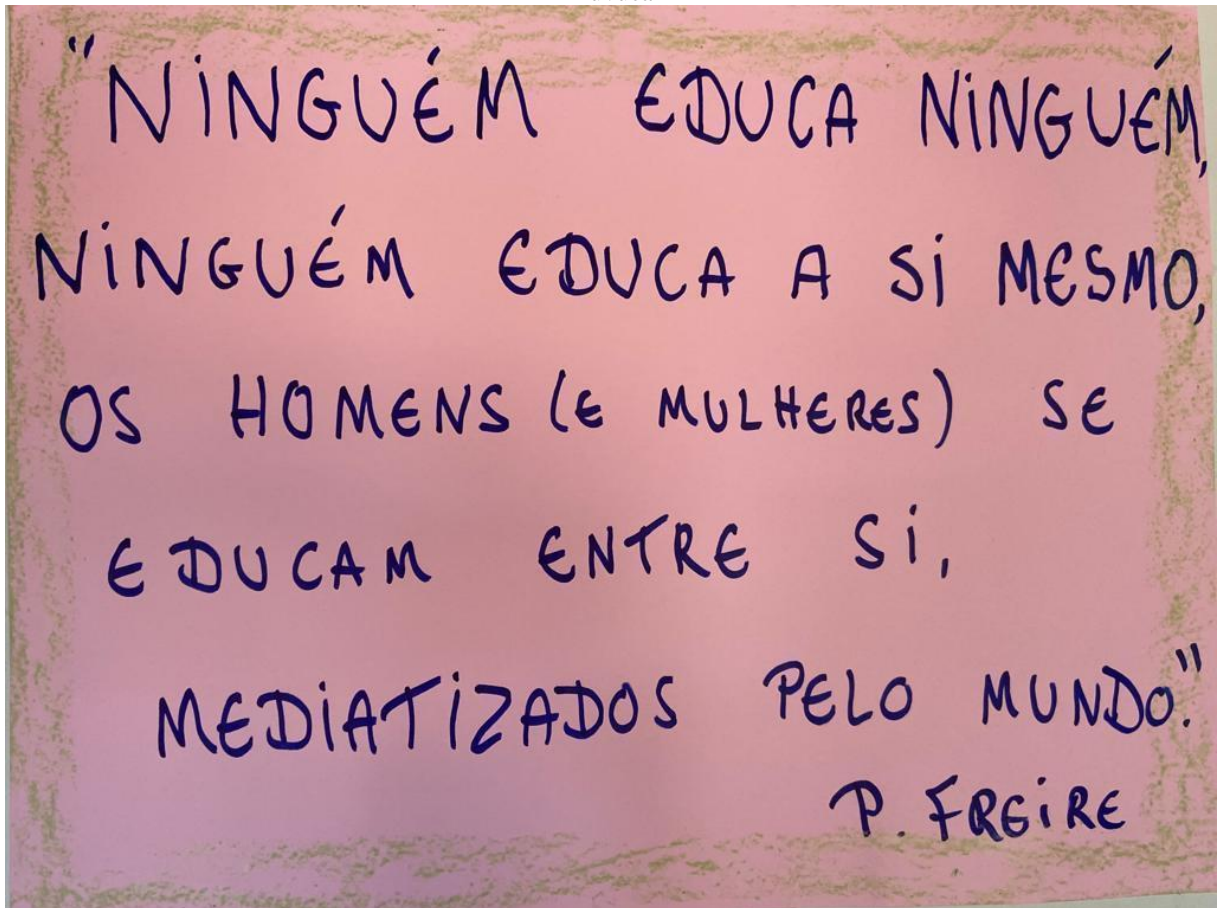 "NINGUÉM EDUCA NINGUÉM,
NINGUÉM EDUCA A SI MESMO,
OS HOMENS (E MULHERES) SE
EDUCAM ENTRE SI,
MEDIATIZADOS PELO MUNDO."
P. FREIRE